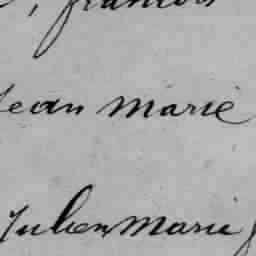 , francois
Jean Marie
Julien Marie